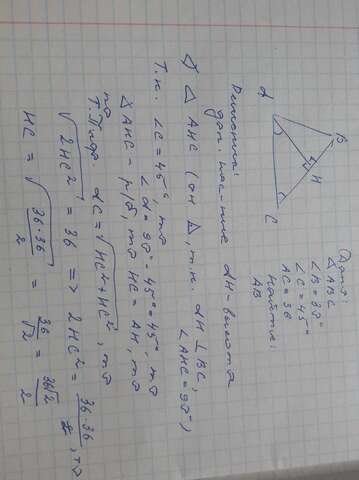 Дано:
△ABC
∠B = 30°
∠C = 45°
AC = 36
Найти:
AB
A
B
H
C
Решение:
доп. пос-ние AH - высота
△ AHC (он ⊿, т.к. AH ⊥ BC,
∠AHC = 90°)
Т.к. ∠C = 45°, то
∠A = 90° - 45° = 45°, то
△AHC - р/б, то HC = AH, то
по
Т.Пифг. AC = √HC² + HC², то
√2HC² = 36 => 2HC² = 36·36, то
HC = √36·36/2 = 36/√2 = 36√2/2